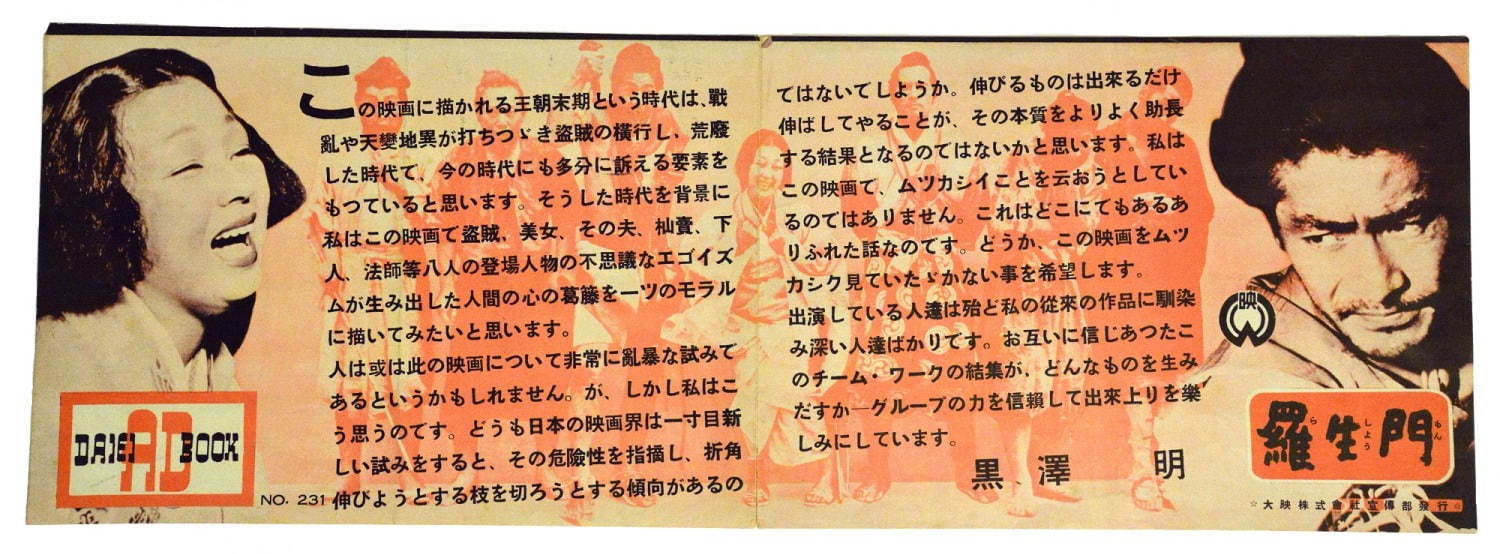 この映画に描かれる王朝末期という時代は、戰
亂や天變地異が打ちつゞき盗賊の横行し、荒廢
した時代て、今の時代にも多分に訴える要素を
もつていると思います。そうした時代を背景に
私はこの映画で盗賊、美女、その夫、杣賣、下
人、法師等八人の登場人物の不思議なエゴイズ
ムが生み出した人間の心の葛藤を一ツのモラル
に描いてみたいと思います。
人は或は此の映画について非常に亂暴な試みで
あるというかもしれません。が、しかし私はこ
う思うのです。どうも日本の映画界は一寸目新
しい試みをすると、その危險性を指摘し、折角
伸びようとする枝を切ろうとする傾向があるの
ではないでしようか。伸びるものは出來るだけ
伸ばしてやることが、その本質をよりよく助長
する結果となるのではないかと思います。私は
この映画で、ムツカシイことを云おうとしてい
るのではありません。これはどこにてもあるあ
りふれた話なのです。どうか、この映画をムツ
カシク見ていたゞかない事を希望します。
出演している人達は殆ど私の從來の作品に馴染
み深い人達ばかりです。お互いに信じあつたこ
のチーム・ワークの結集が、どんなものを生み
だすか—グループの力を信賴して出來上りを樂
しみにしています。
黒澤 明
DAIEI AD BOOK
NO. 231
映
羅生門
ら しよう もん
☆大映株式會社宣傳部發行☆